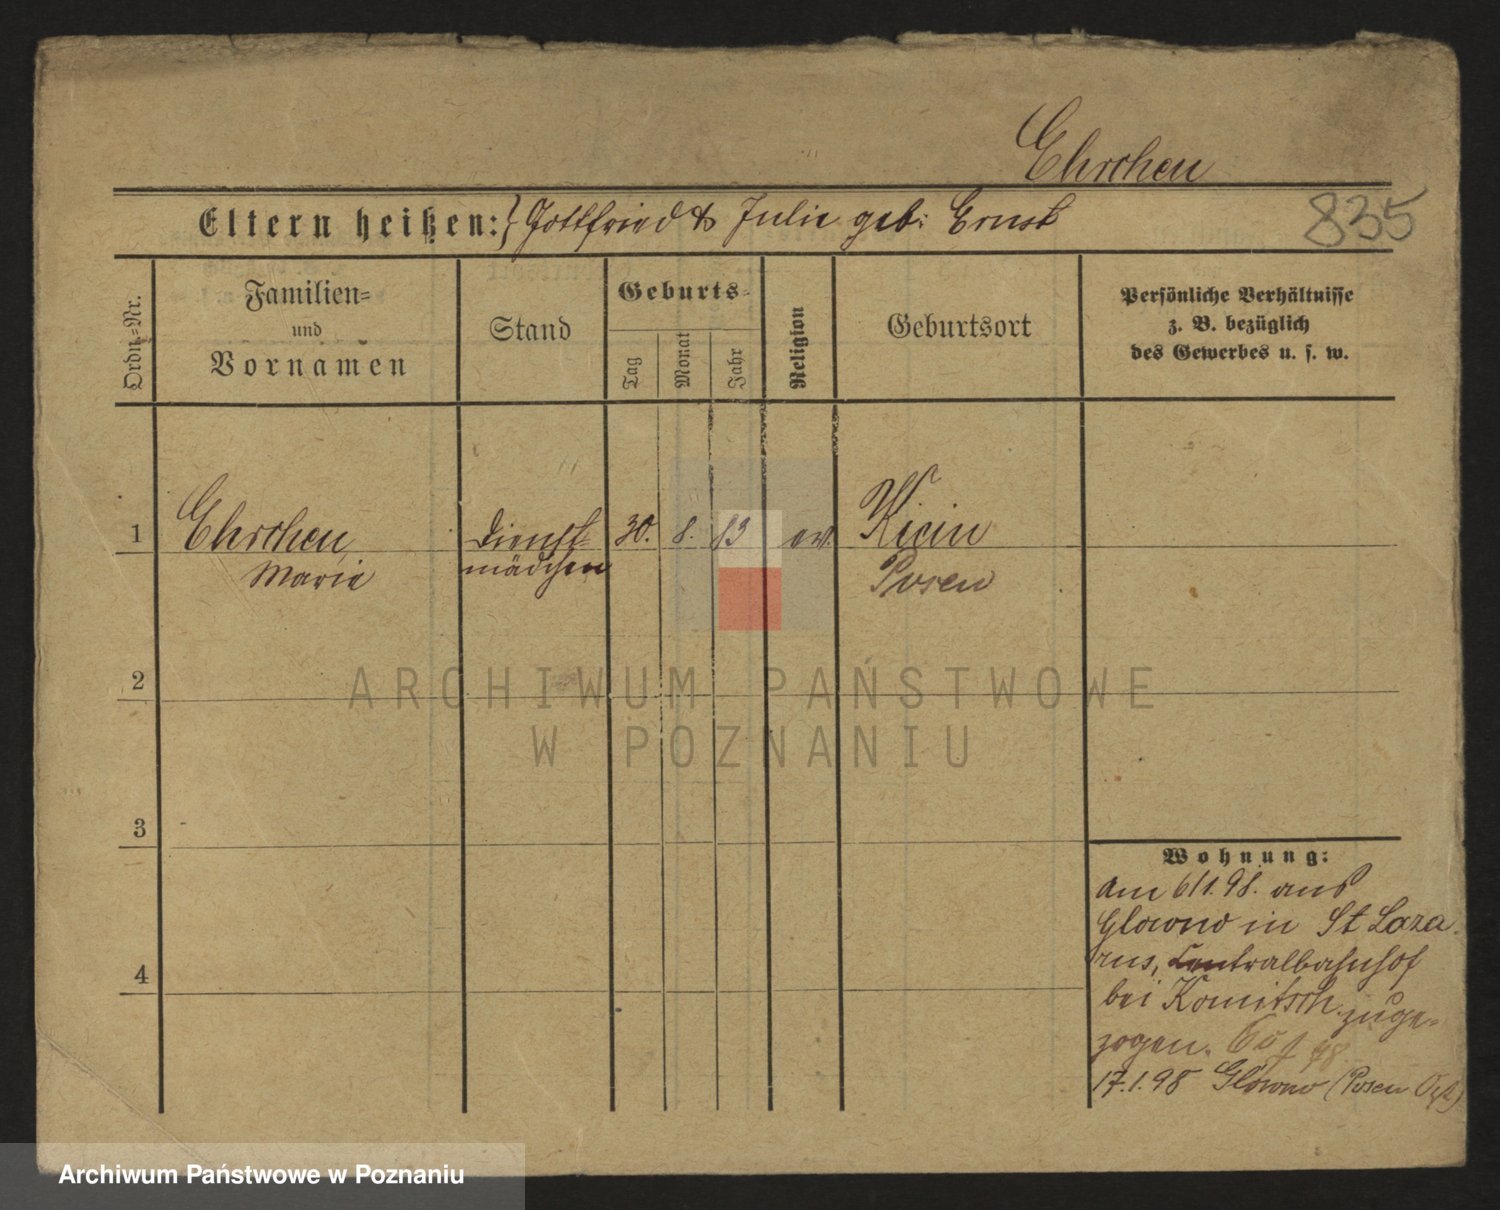 Ehrchen
Eltern heißen: Gottfried & Julie geb: Ernst
835
Ordn.-Nr.
Familien-
und
Vornamen
Stand
Geburts-
Tag
Monat
Jahr
Religion
Geburtsort
Persönliche Verhältnisse
z. B. bezüglich
des Gewerbes u. s. w.
1
Ehrchen
Marie
Dienst-
mädchen
30. 8. 83
ev.
Kicin
Posen
2
3
4
Wohnung:
Am 6/1.98. aus
Glowno in St Laza-
rus, Centralbahnhof
bei Komitsch zuge-
zogen.
17.1.98 Glowno (Posen Ost)
ARCHIWUM PAŃSTWOWE
W POZNANIU
Archiwum Państwowe w Poznaniu